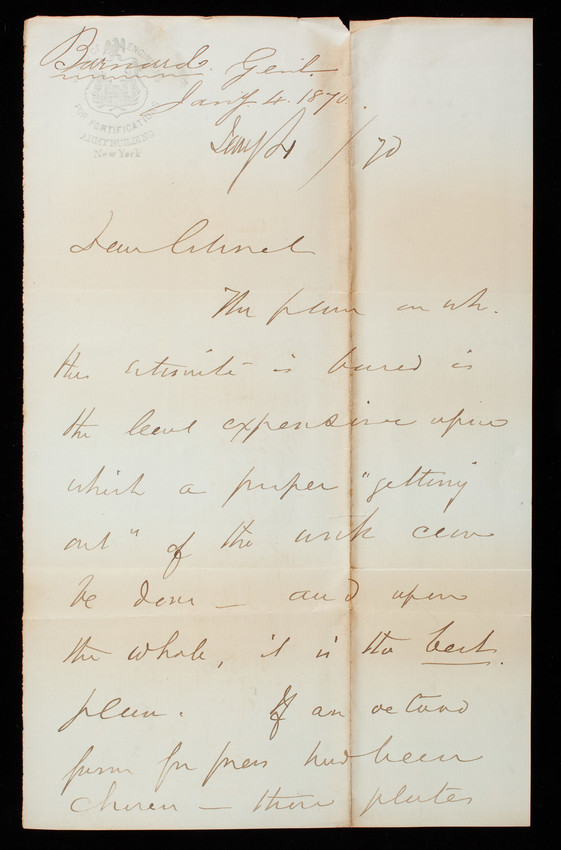 Barnard. Genl.
Jany. 4. 1870.
ENGINEERS
FOR FORTIFICATIONS
ARMY BUILDING
New York
Jany 4 / 70
Dear Colonel
The plan on wh.
the estimate is based is
the least expensive upon
which a proper "getting
out" of the work can
be done — and upon
the whole, it is the best
plan. If an octavo
form for press had been
chosen — those plates